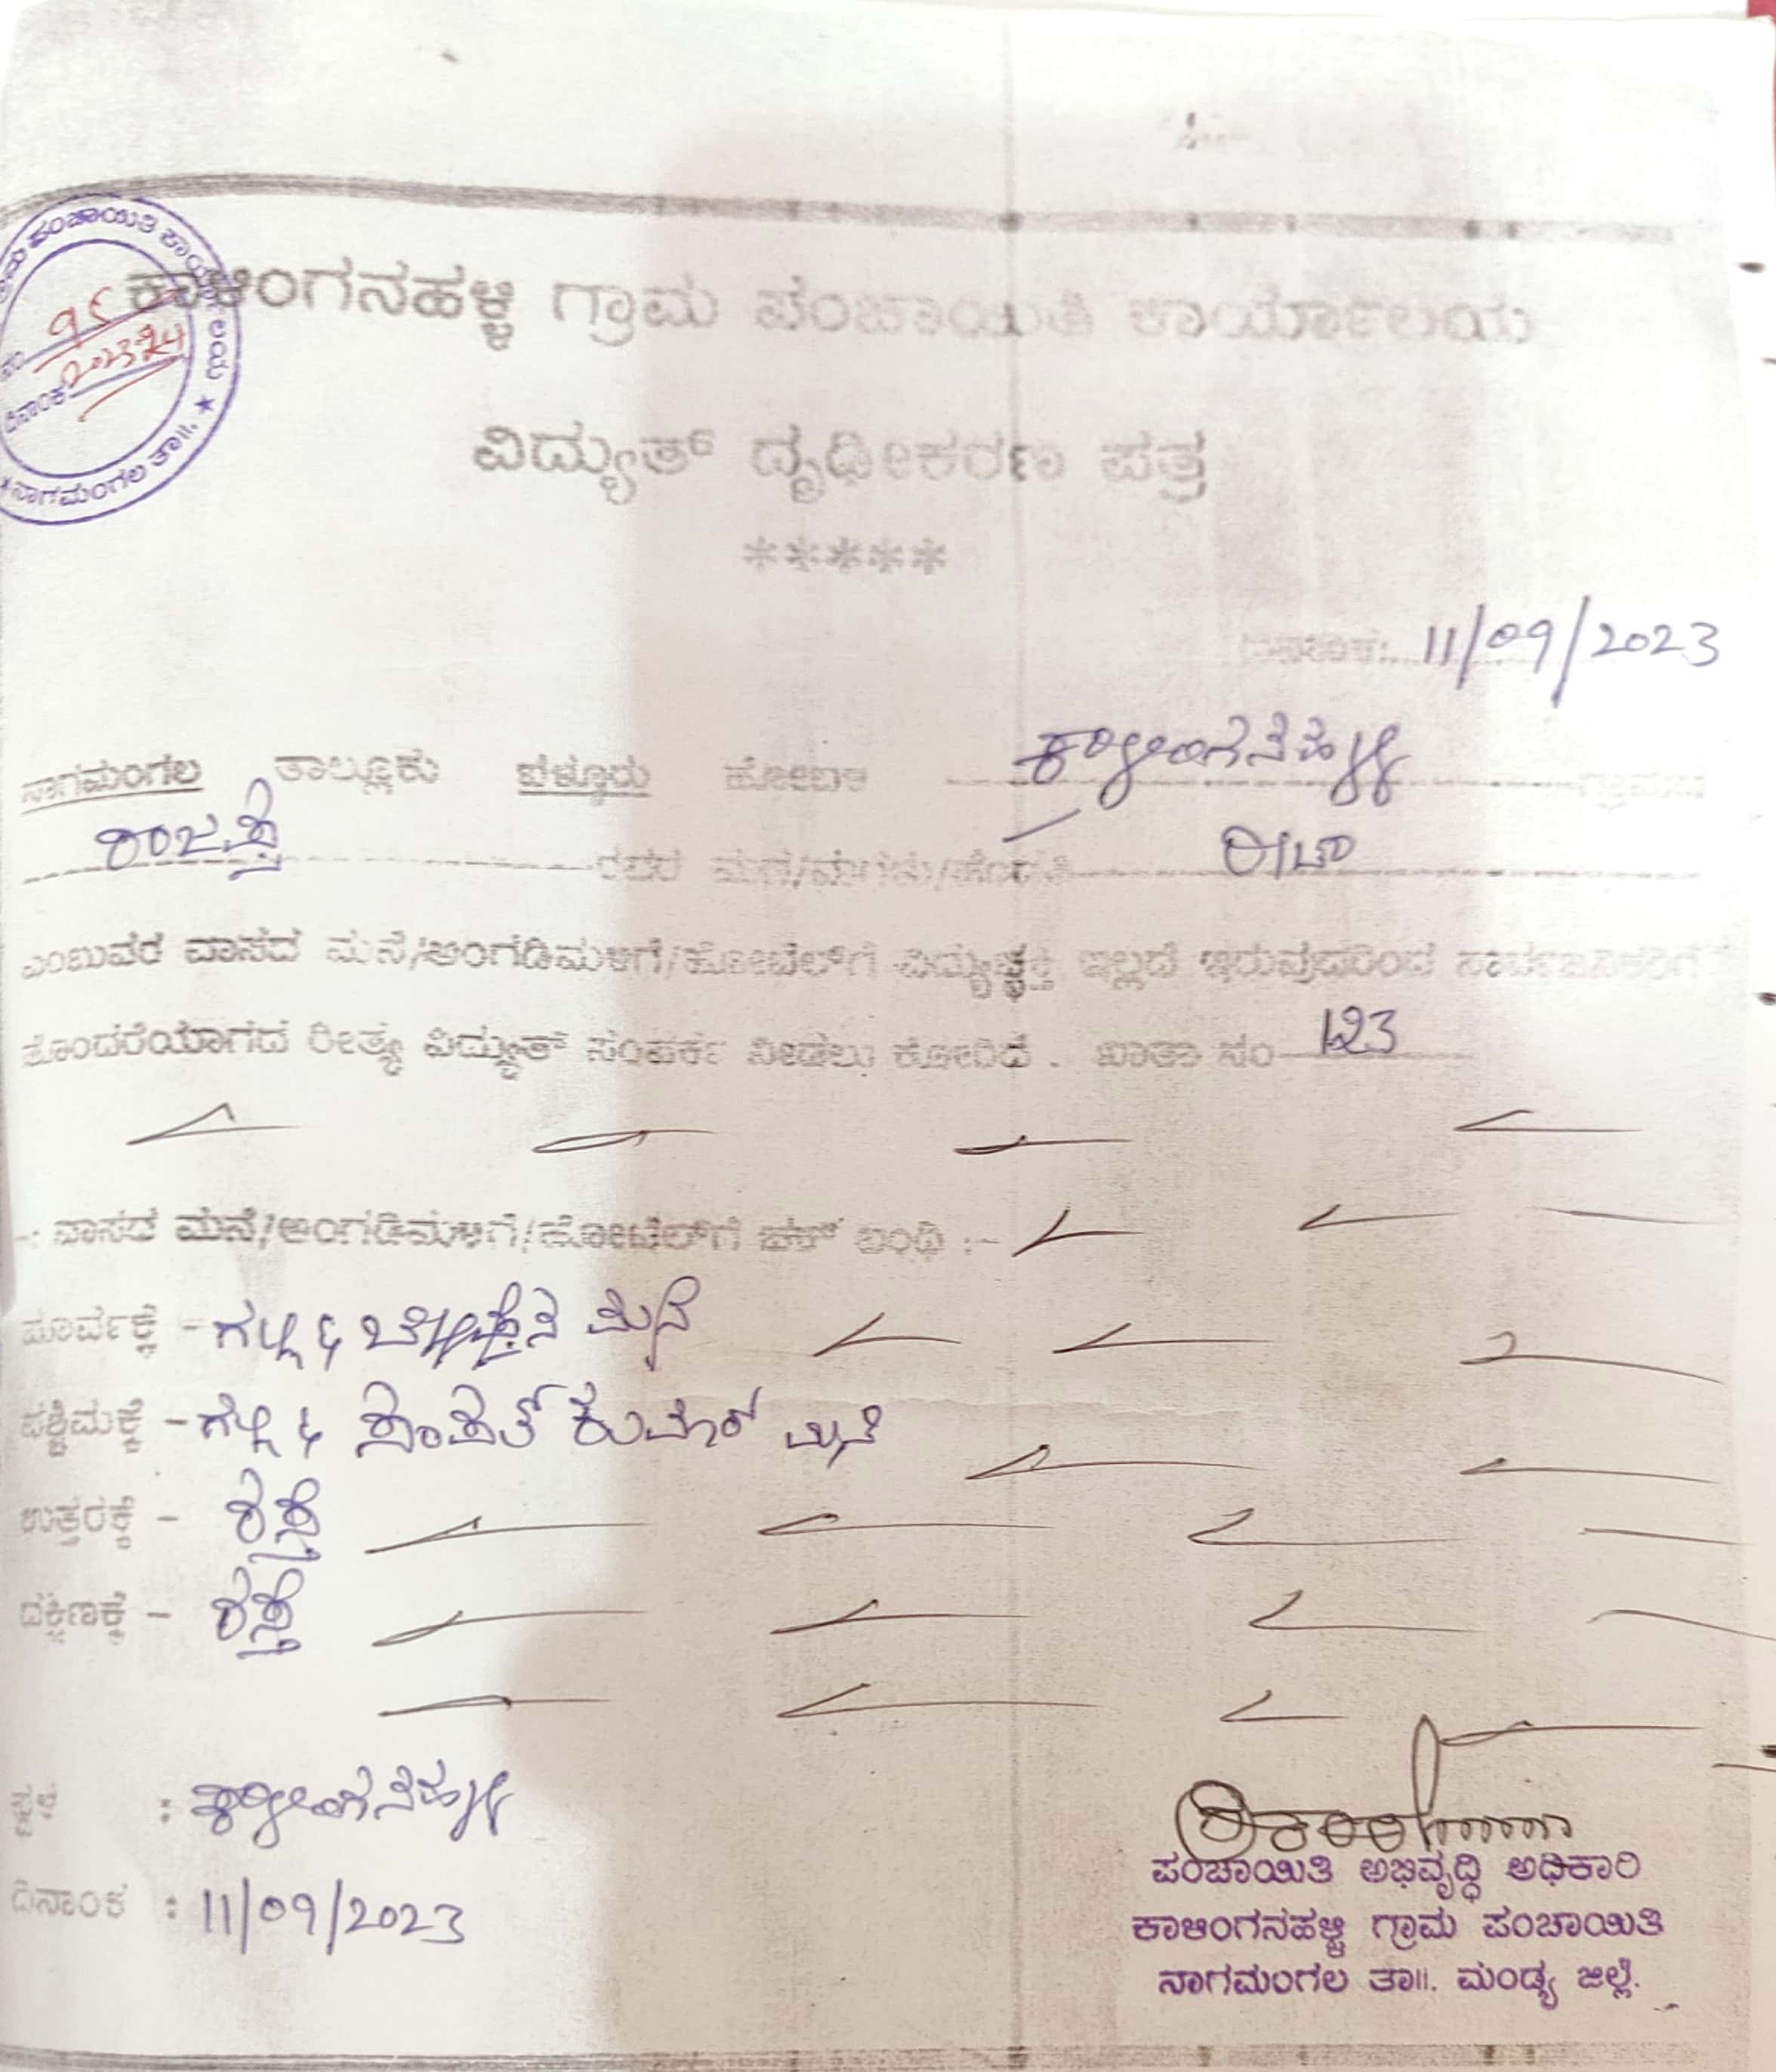 ಗ್ರಾಮ ಪಂಚಾಯಿತಿ ಕಾರ್ಯಾಲಯ
ನಂ 95
ದಿನಾಂಕ 2023-24
★ ನಾಗಮಂಗಲ ತಾ॥. ★
ಕಾಳಿಂಗನಹಳ್ಳಿ ಗ್ರಾಮ ಪಂಚಾಯಿತಿ ಕಾರ್ಯಾಲಯ
ವಿದ್ಯುತ್ ದೃಢೀಕರಣ ಪತ್ರ
*****
ದಿನಾಂಕ:. 11/09/2023
ನಾಗಮಂಗಲ ತಾಲ್ಲೂಕು ಬೆಳ್ಳೂರು ಹೋಬಳಿ ಕಾಳಿಂಗನಹಳ್ಳಿ ಗ್ರಾಮದ
ರಾಜಪ್ಪ ರವರ ಮಗ/ಮಗಳು/ಹೆಂಡತಿ
ಎಂಬುವರ ವಾಸದ ಮನೆ/ಅಂಗಡಿಮಳಿಗೆ/ಹೋಟೆಲ್‌ಗೆ ವಿದ್ಯುಚ್ಛಕ್ತಿ ಇಲ್ಲದೆ ಇರುವುದರಿಂದ ಸಾರ್ವಜನಿಕರಿಗೆ
ತೊಂದರೆಯಾಗದ ರೀತ್ಯ ವಿದ್ಯುತ್ ಸಂಪರ್ಕ ನೀಡಲು ಕೋರಿದೆ . ಖಾತಾ ಸಂ 123
-: ವಾಸದ ಮನೆ/ಅಂಗಡಿಮಳಿಗೆ/ಹೋಟೆಲ್‌ಗೆ ಚಕ್ ಬಂಧಿ :-
ಪೂರ್ವಕ್ಕೆ - ಗಲ್ಲಿ & ಮನೆ
ಪಶ್ಚಿಮಕ್ಕೆ - ಗಲ್ಲಿ & ಸಂಪತ್ ಕುಮಾರ್ ಮನೆ
ಉತ್ತರಕ್ಕೆ - ರಸ್ತೆ
ದಕ್ಷಿಣಕ್ಕೆ - ರಸ್ತೆ
: ಕಾಳಿಂಗನಹಳ್ಳಿ
ದಿನಾಂಕ : 11/09/2023
ಪಂಚಾಯಿತಿ ಅಭಿವೃದ್ಧಿ ಅಧಿಕಾರಿ
ಕಾಳಿಂಗನಹಳ್ಳಿ ಗ್ರಾಮ ಪಂಚಾಯಿತಿ
ನಾಗಮಂಗಲ ತಾ॥. ಮಂಡ್ಯ ಜಿಲ್ಲೆ.